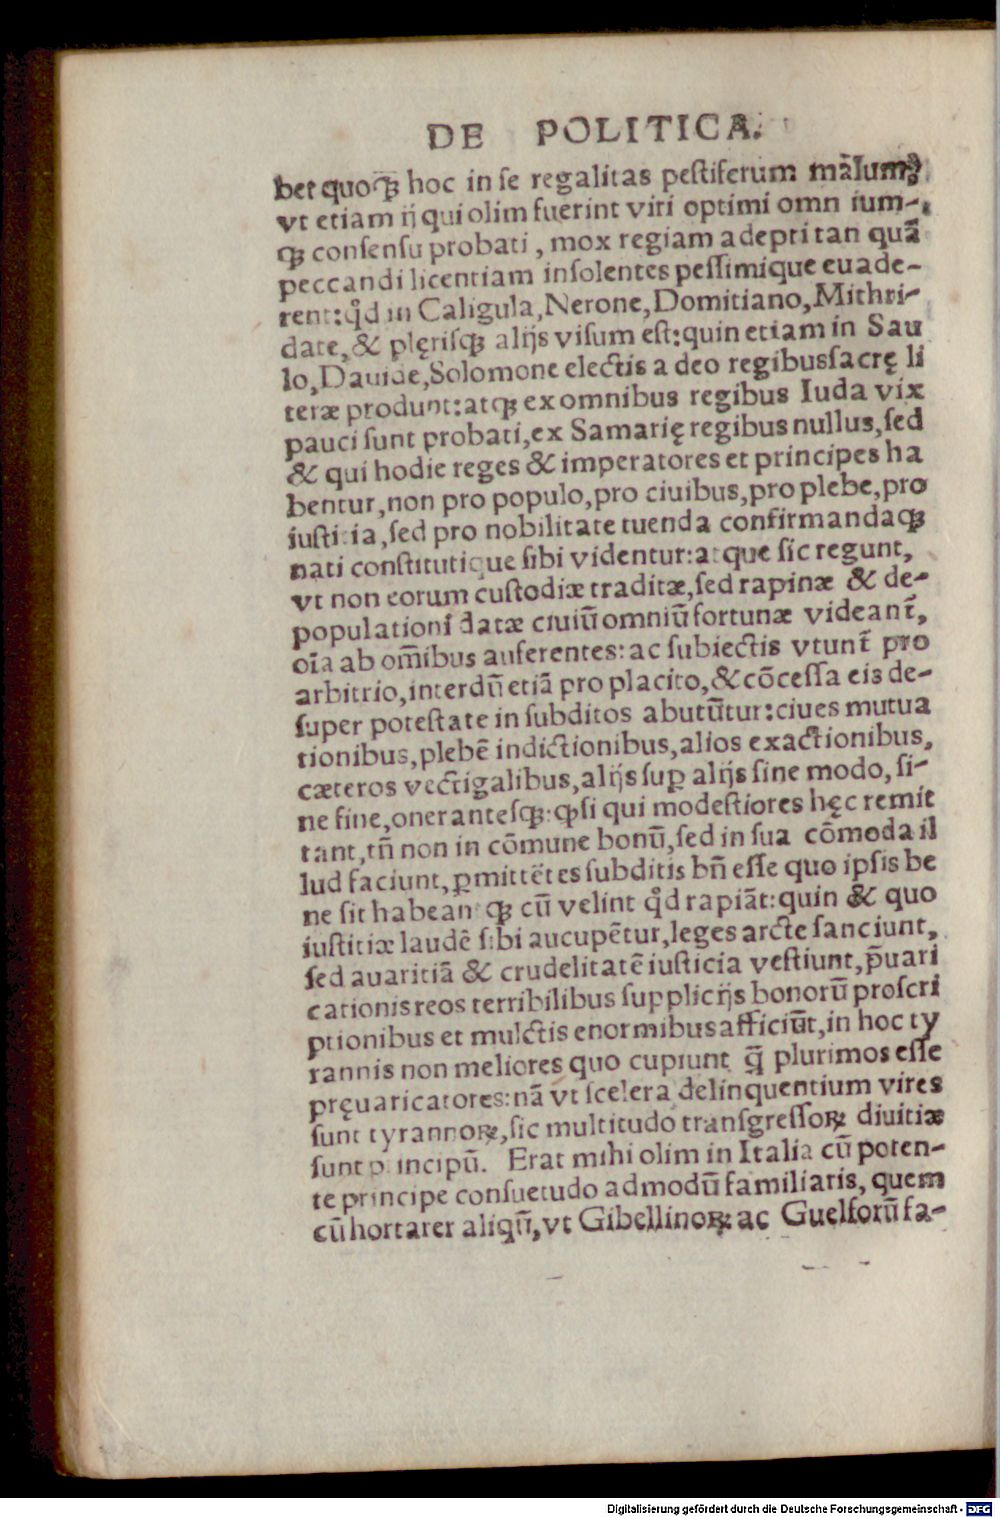 DE POLITICA.
bet quoqꝫ hoc in se regalitas pestiferum mãlum,
vt etiam ij qui olim fuerint viri optimi omn ium-
qꝫ consensu probati, mox regiam adepti tan quã
peccandi licentiam insolentes pessimique euade-
rent: qd̉ in Caligula, Nerone, Domitiano, Mithri-
date, & plęrisqꝫ alijs visum est: quin etiam in Sau
lo, Dauide, Solomone electis a deo regibus sacrę li
teræ produnt: atqꝫ ex omnibus regibus Iuda vix
pauci sunt probati, ex Samarię regibus nullus, sed
& qui hodie reges & imperatores et principes ha
bentur, non pro populo, pro ciuibus, pro plebe, pro
iustitia, sed pro nobilitate tuenda confirmandaqꝫ
nati constitutique sibi videntur: atque sic regunt,
vt non eorum custodiæ traditæ, sed rapinæ & de-
populationi datæ ciuiũ omniũ fortunæ videant̃,
oĩa ab om̃ibus auferentes: ac subiectis vtunt̃ pro
arbitrio, interdũ etiã pro placito, & cõcessa eis de-
super potestate in subditos abutũtur: ciues mutua
tionibus, plebẽ indictionibus, alios exactionibus,
cæteros vectigalibus, alijs suꝑ alijs sine modo, si-
ne fine, onerantesqꝫ: ꝙ si qui modestiores hęc remit
tant, tñ non in cõmune bonũ, sed in sua cõmoda il
lud faciunt, ꝑmittẽtes subditis bñ esse quo ipsis be
ne sit habeantqꝫ cũ velint qd̉ rapiãt: quin & quo
iustitiæ laudẽ sibi aucupẽtur, leges arcte sanciunt,
sed auaritiã & crudelitatẽ iusticia vestiunt, p̃uari
cationis reos terribilibus supplicijs bonorũ proscri
ptionibus et mulctis enormibus afficiũt, in hoc ty
rannis non meliores quo cupiunt q̃ plurimos esse
pręuaricatores: nã vt scelera delinquentium vires
sunt tyrannoꝝ, sic multitudo transgressoꝝ diuitiæ
sunt principũ. Erat mihi olim in Italia cũ poten-
te principe consuetudo admodũ familiaris, quem
cũ hortarer aliqũ, vt Gibellinoꝝ ac Guelforũ fa-
Digitalisierung gefördert durch die Deutsche Forschungsgemeinschaft - DFG